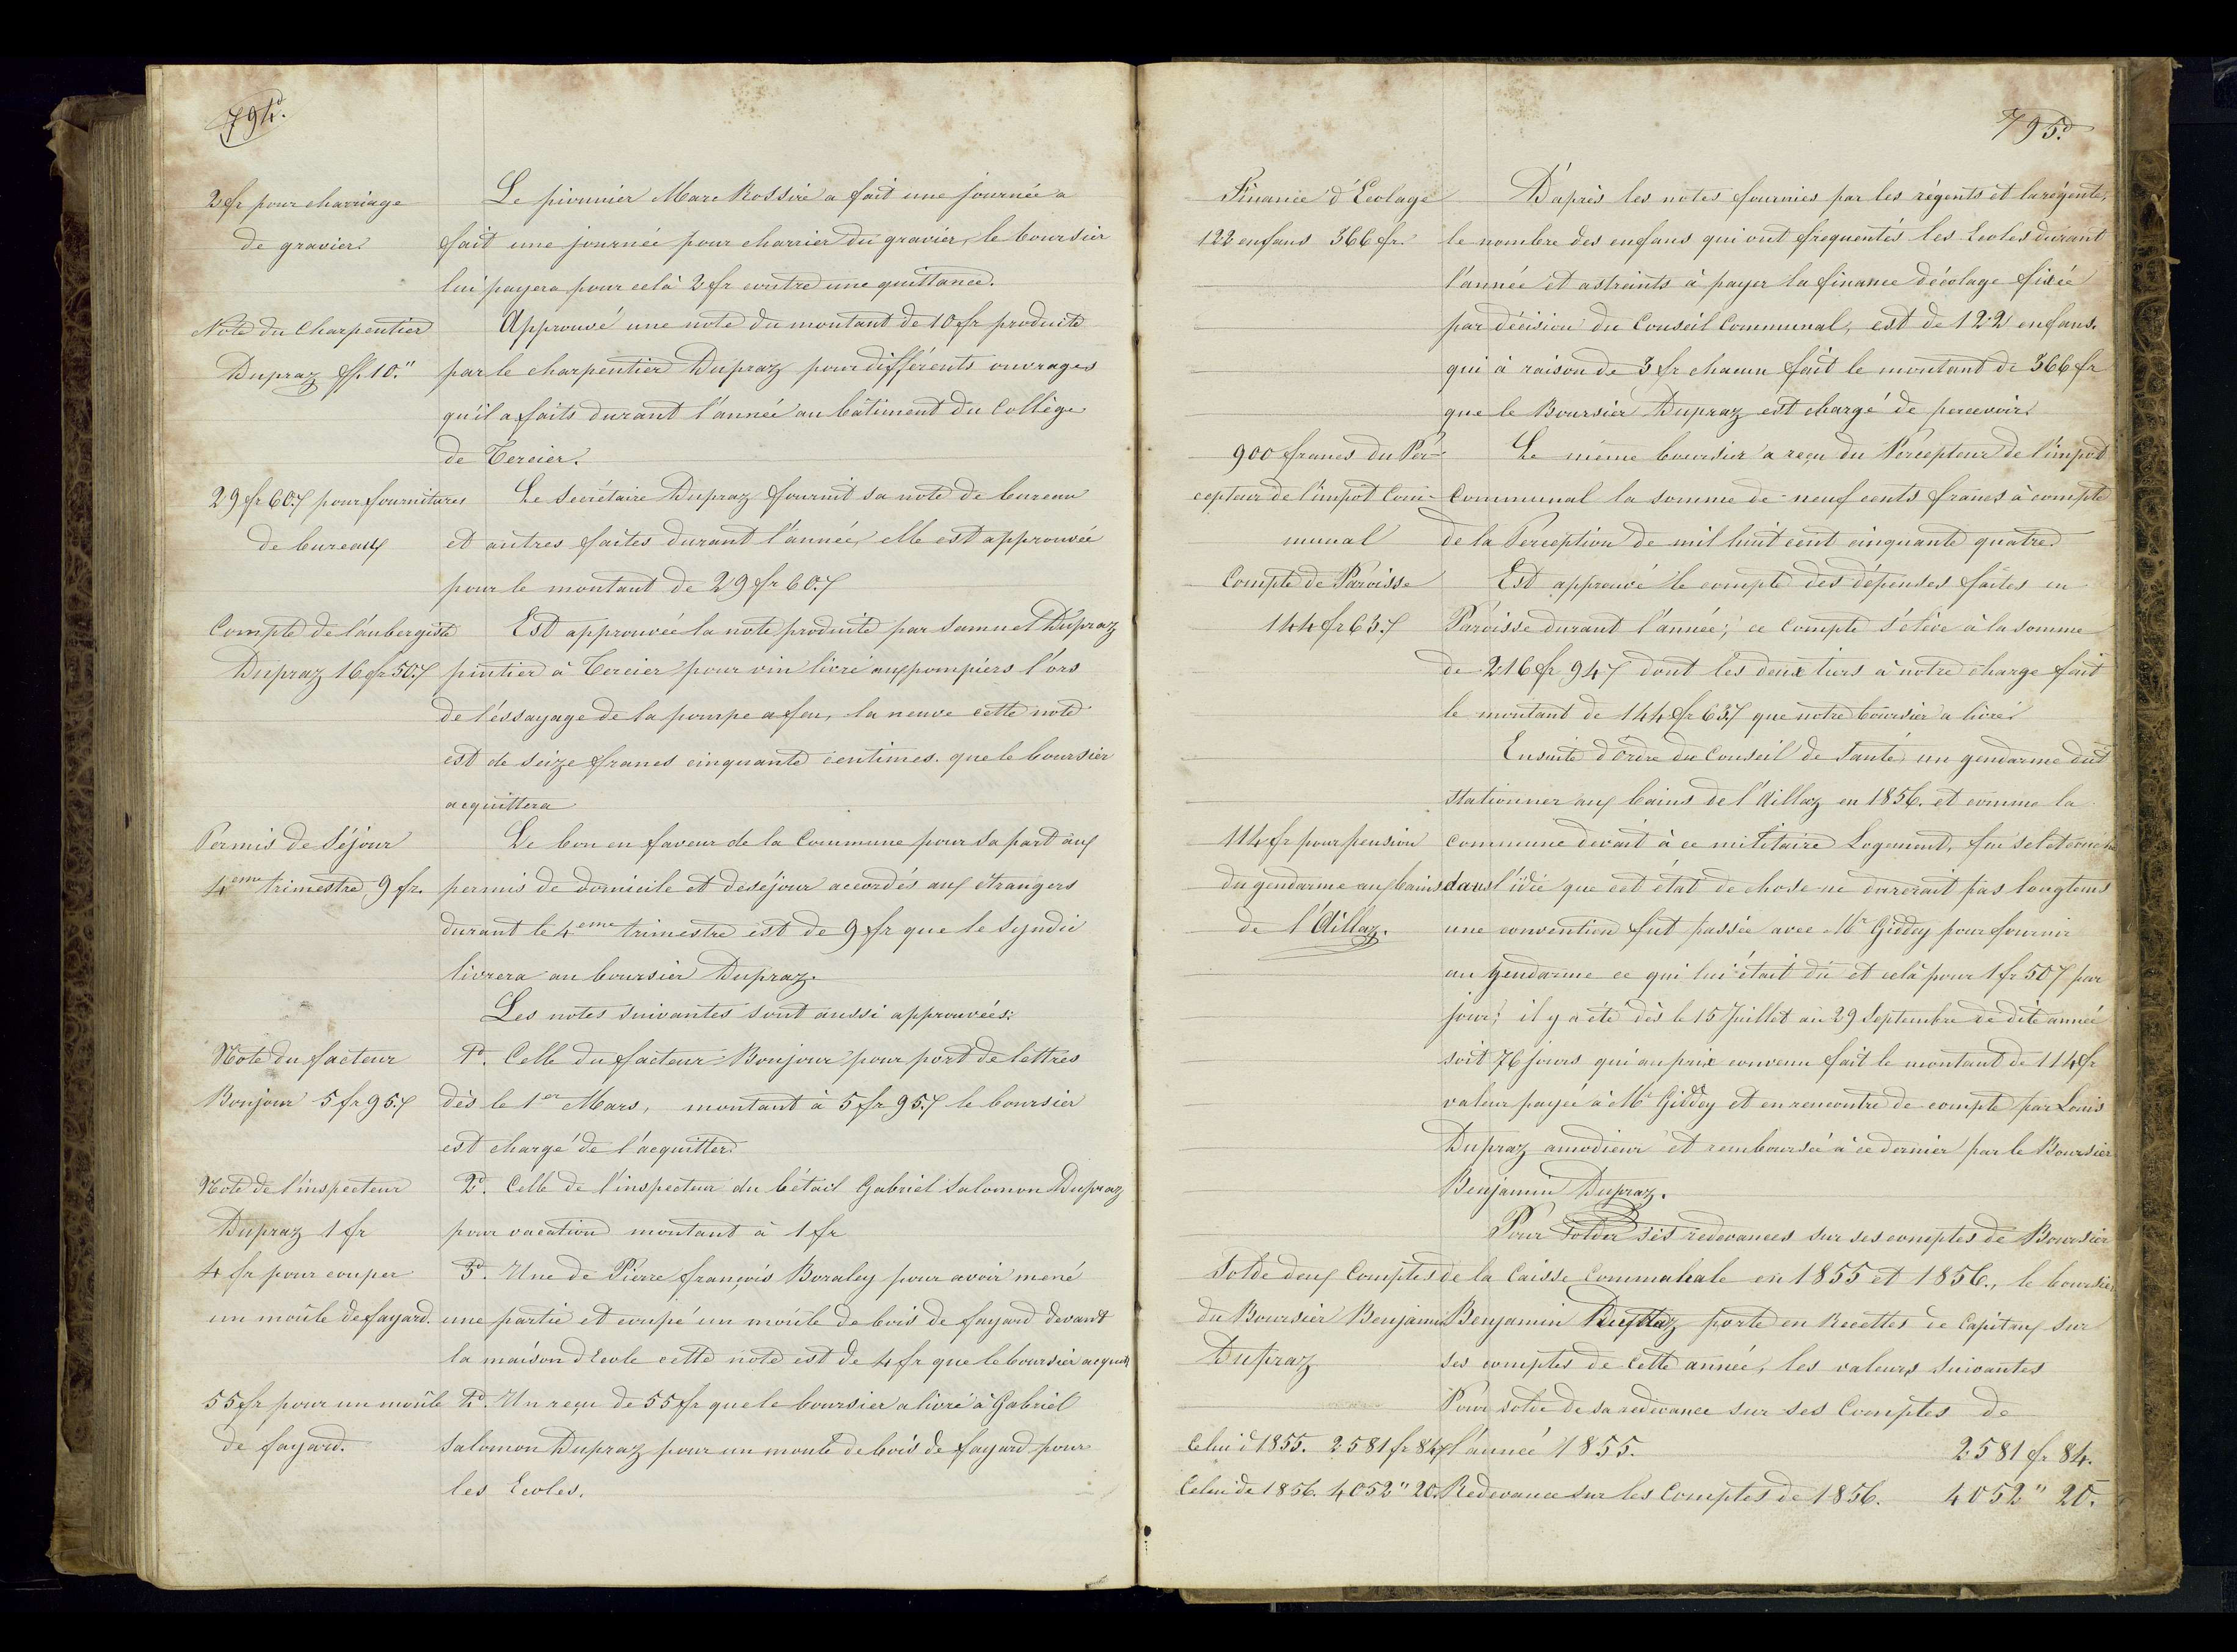 794.
2 fr pour charriage
de gravier.
Le pionnier Marc Rossire a fait une journée a
fait une journée pour charrier du gravier, le boursier
lui payera pour celà 2 fr contre une quittance.
Note du Charpentier
Dupraz ff. 10."
Approuvé une note du montant de 10 fr produite
par le charpentier Dupraz pour différents ouvrages
qu'il a faits durant l'année au bâtiment du Collège
de Tercier.
29 fr 60.7 pour fournitures
de bureaux
Le secrétaire Dupraz fournit sa note de bureau
et autres faites durant l'année, elle est approuvée
pour le montant de 29 fr 60.7
Compte de l'aubergiste
Dupraz 16 fr 50.7
Est approuvée la note produite par Samuel Dupraz
pintier à Tercier pour vin livré aux pompiers l'ors
de l'éssayage de la pompe a feu, la neuve cette note
est de seize francs cinquante centimes. que le boursier
acquittera
Permis de séjour
4eme trimestre 9 fr.
Le bon en faveur de la Commune pour sa part aux
permis de domicile et de séjour accordés aux étrangers
durant le 4eme trimestre est de 9 fr que le Syndic
livrera au boursier Dupraz.
Les notes suivantes sont aussi approuvées:
Note du facteur
Bonjour 5 fr 95.7
1o. Celle du facteur Bonjour pour port de lettres
dès le 1er Mars, montant à 5 fr 95.7 le boursier
est chargé de l'acquitter.
Note de l'inspecteur
Dupraz 1 fr
2o. Celle de l'inspecteur du bétail Gabriel Salomon Dupraz
pour vacation montant à 1 fr
4 fr pour couper
un moûle de fayard.
3o. Une de Pierre françois Boraley pour avoir mené
une partie et coupé un moûle de bois de fayard devant
la maison d'Ecole cette note est de 4 fr que le boursier acquitt
55 fr pour un moûle
de fayard.
4o. Un reçu de 55 fr que le boursier a livré à Gabriel
Salomon Dupraz pour un moule de bois de fayard pour
les Ecoles.
795.
Finance d'Ecolage
122 enfans 366 fr.
D'après les notes fournies par les régents et la régente,
le nombre des enfans qui ont frequentés les Ecoles durant
l'année et astreints à payer la finance d'écolage fixée
par décision du Conseil Communal, est de 122 enfans.
qui à raison de 3 fr chacun fait le montant de 366 fr
que le Boursier Dupraz est chargé de percevoir.
900 francs du Per-
cepteur de l'impôt Com-
munal
Le même boursier a reçu du Percepteur de l'impôt
Communal la somme de neuf cents francs à compte
de la Perception de mil huit cent cinquante quatre.
Compte de Paroisse
144 fr 63.7
Est approuvé le compte des dépenses faites en
Paroisse durant l'année; ce Compte s'élève à la somme
de 216 fr 94 7 dont les deux tiers à notre charge fait
le montant de 144 fr 63.7 que notre boursier a livré.
Ensuite d'Ordre du Conseil de Santé un gendarme dut
stationner aux bains de l'Aillaz en 1856. et comme la
114 fr pour pension
du gendarme aux bains
de l'Aillaz.
commune devait à ce militaire Logement, feu sel et
dans l'idée que cet état de chose ne durerait pas longtems
une convention fut passée avec Mr Giddey pour fournir
au gendarme ce qui lui était dû et celà pour 1 fr 50 7 par
jour; il y a été dès le 15 Juillet au 29 Septembre de dite année
soit 76 jours qui au prix convenu fait le montant de 114 fr
valeur payée à Mr Giddey et en rencontre de compte par Louis
Dupraz amodieur et remboursée à ce dernier par le Boursier
Benjamin Dupraz.
Pour solder ses redevances sur ses comptes de Boursier
Solde deux Comptes
du Boursier Benjamin
Dupraz
de la Caisse Communale en 1855 et 1856., le boursier
Benjamin Dupraz porte en Recettes de Capitaux sur
ses comptes de cette année, les valeurs suivantes
Pour solde de sa redevance sur ses Comptes de
Celui d 1855. 2581 fr 84 7
l'année 1855. 2581 fr 84.
Celui de 1856. 4052 " 20.
Redevance sur les Comptes de 1856. 4052 " 20.